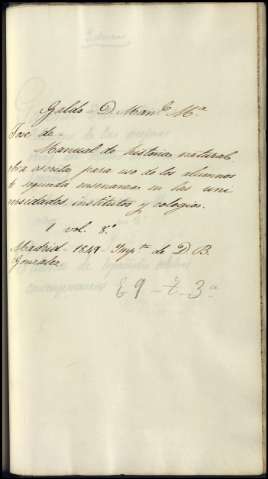 Galdo - D. Man.l M.a
José de
Manual de historia natural
obra escrita para uso de los alumnos
de segunda enseñanza en las uni
versidades, institutos y colegios.
1 vol. 8.o
Madrid - 1849 - Imp.ta de D. B.
Gonzalez
E 9 - t - 3a